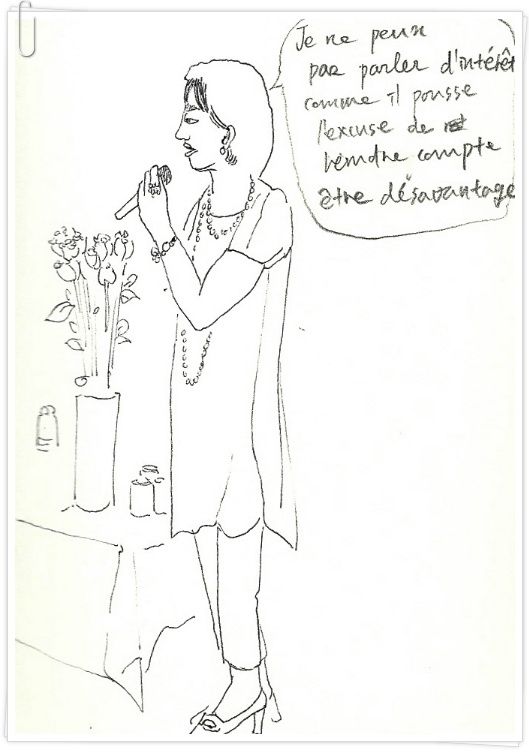 Je ne peux
pas parler d'intérêt
comme il pousse
l'excuse de
rendre compte
être désavantage